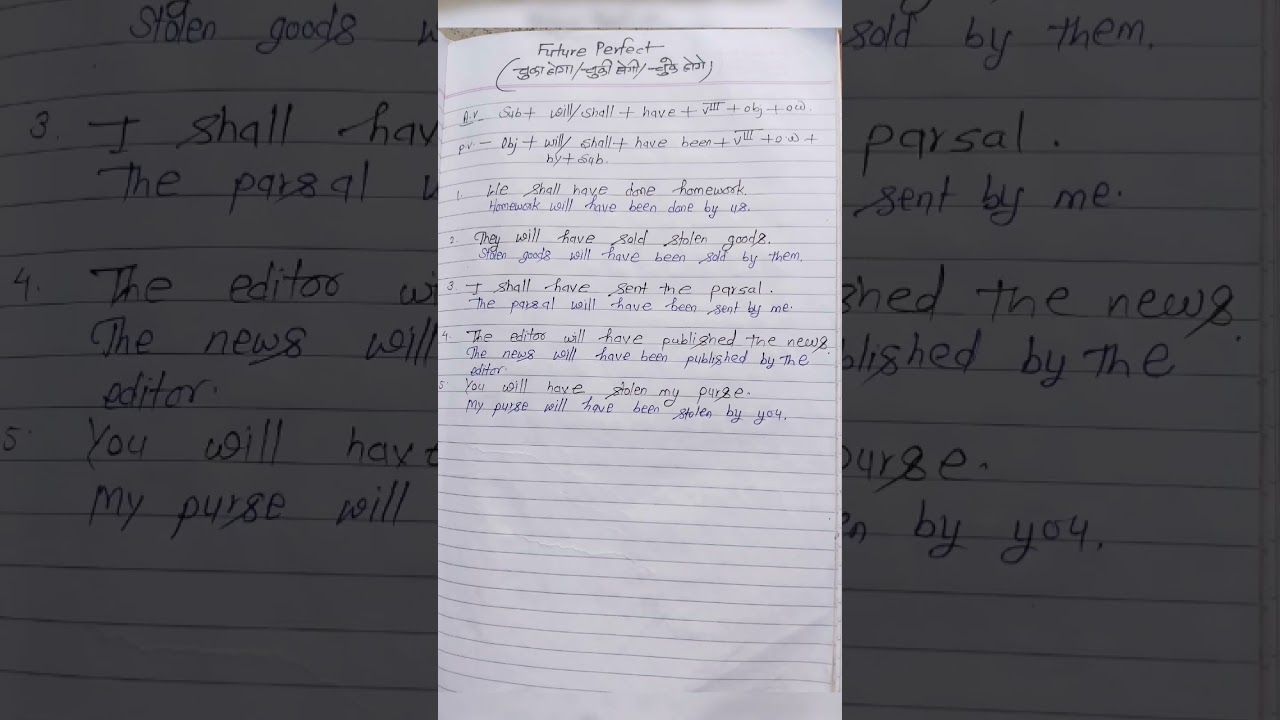 Future Perfect
(चुका होगा/चुकी होगी/चुके होंगे)
A.V. Sub + will/shall + have + VIII + obj + o.w.
P.V. - Obj + will/shall + have been + VIII + o.w +
by + sub.
1. We shall have done homework.
Homework will have been done by us.
2. They will have sold stolen goods.
Stolen goods will have been sold by them.
3. I shall have sent the parsal.
The parsal will have been sent by me.
4. The editor will have published the news.
The news will have been published by the
editor.
5. You will have stolen my purse.
My purse will have been stolen by you.